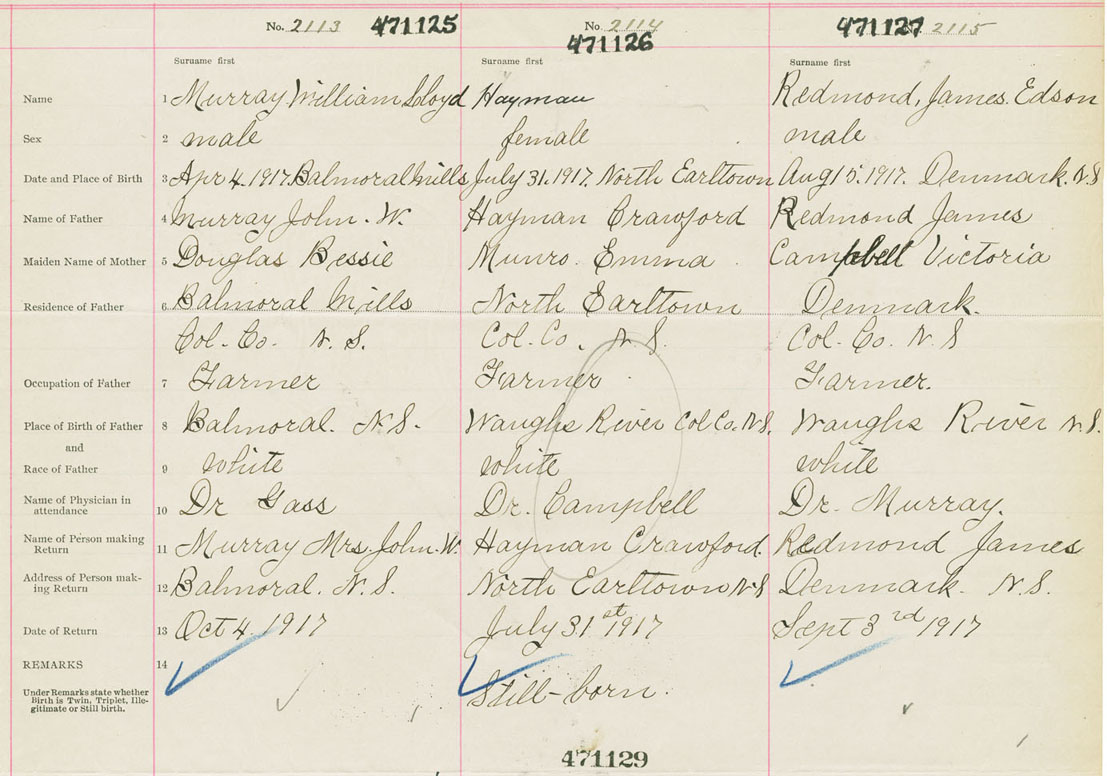 No. 2113 471125 No. 2114 471126 471127 No. 2115
Surname first Surname first Surname first
Name 1 Murray William Lloyd Hayman Redmond, James. Edson
Sex 2 male female male
Date and Place of Birth 3 Apr 4. 1917. Balmoral Mills July 31. 1917. North Earltown Aug 15. 1917. Denmark. N.S
Name of Father 4 Murray John. W. Hayman Crawford Redmond James
Maiden Name of Mother 5 Douglas Bessie Munro. Emma Campbell Victoria
Residence of Father 6 Balmoral Mills North Earltown Denmark.
Col. Co. N. S. Col. Co. N S. Col. Co. N S
Occupation of Father 7 Farmer Farmer Farmer.
Place of Birth of Father 8 Balmoral. N S. Waughs River Col Co. N.S. Waughs River N.S.
and
Race of Father 9 white white white
Name of Physician in
attendance 10 Dr Gass Dr. Campbell Dr. Murray.
Name of Person making
Return 11 Murray Mrs. John. W. Hayman Crawford. Redmond James
Address of Person mak-
ing Return 12 Balmoral. N. S. North Earltown N S Denmark. N. S.
Date of Return 13 Oct 4. 1917 July 31st 1917 Sept 3rd 1917
REMARKS 14
Under Remarks state whether
Birth is Twin, Triplet, Ille-
gitimate or Still birth.
Still-born.
471129